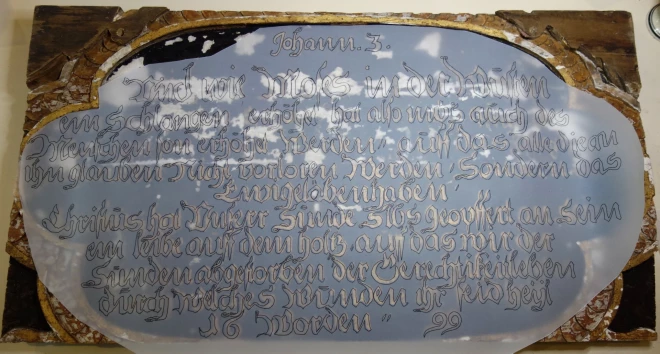 Johann. 3.
Und wie Moses in der Wüsten
ein schlangen erhöhet hat also mus auch des
Menschen son erhöhet Werden, auff das alle die an
ihn glauben Nicht vorloren Werden, Sondern das
Ewige leben haben
Christus hat Unserer Sünde Selbs geopffert an Sein
em leibe auff dem holtz auff das wir der
Sünden abgestorben der Gerechtikeit leben
durch welches Wunden ihr seid heil
16 Worden 99